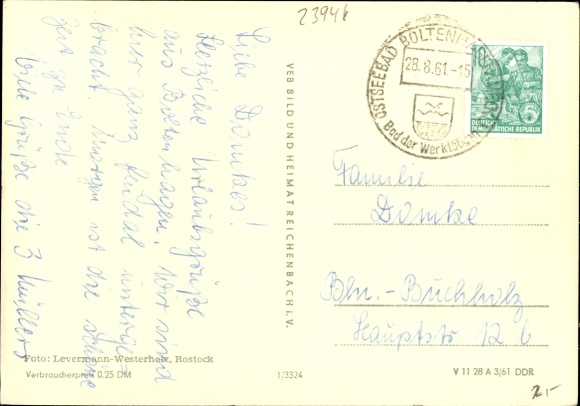 23946
Liebe Domkes!
Herzliche Urlaubsgrüße
aus Boltenhagen. Wir sind
hier ganz feudal unterge-
bracht. Morgen ist die schöne
Zeit zu Ende
Viele Grüße die 3 Müllers
Foto: Levermann-Westerholz, Rostock
Verbraucherpreis 0.25 DM
VEB BILD UND HEIMAT REICHENBACH I. V.
1/3324
OSTSEEBAD BOLTENHAGEN
28.8.61.-15
Bad der Werktätigen
10
DEUTSCHE
DEMOKRATISCHE REPUBLIK
Familie
Domke
Bln.-Buchholz
Hauptstr 126
V 11 28 A 3/61 DDR